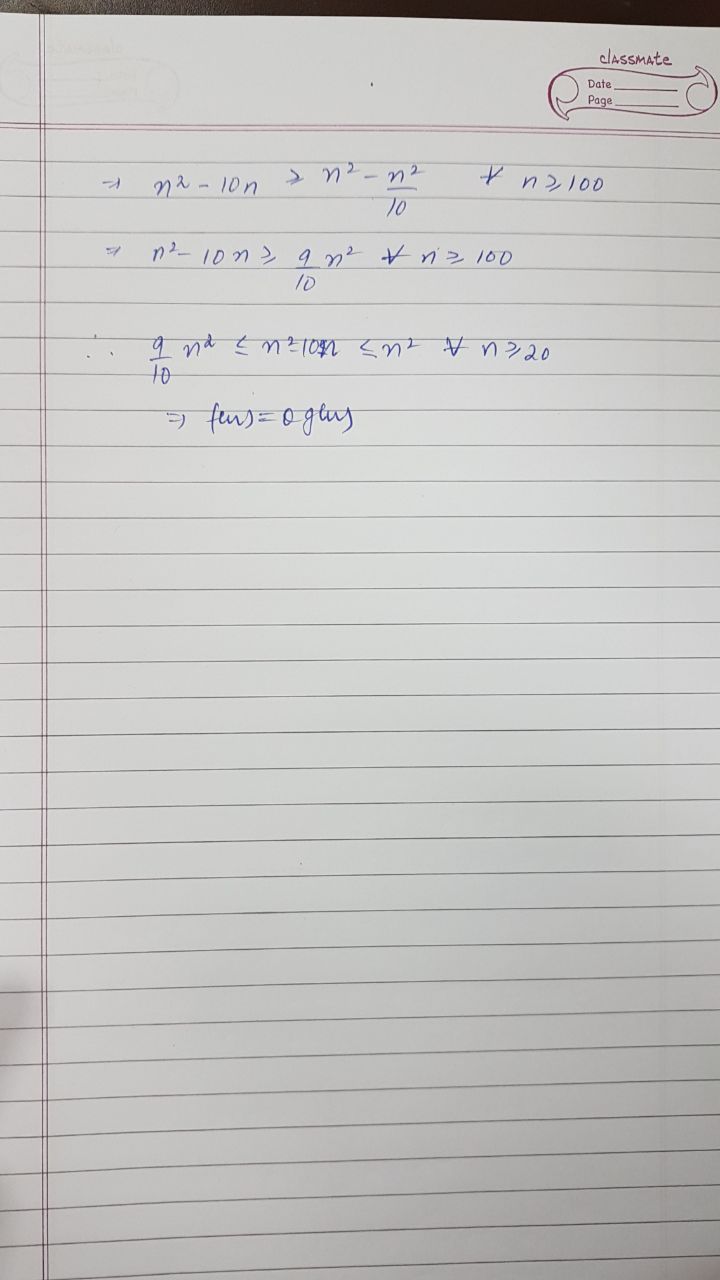 classmate
Date
Page
⇒ n² - 10n ≥ n² - n²/10 ∀ n ≥ 100
⇒ n² - 10n ≥ 9/10 n² ∀ n ≥ 100
∴ 9/10 n² ≤ n² - 10n ≤ n² ∀ n ≥ 20
⇒ f(n) = θ g(n)